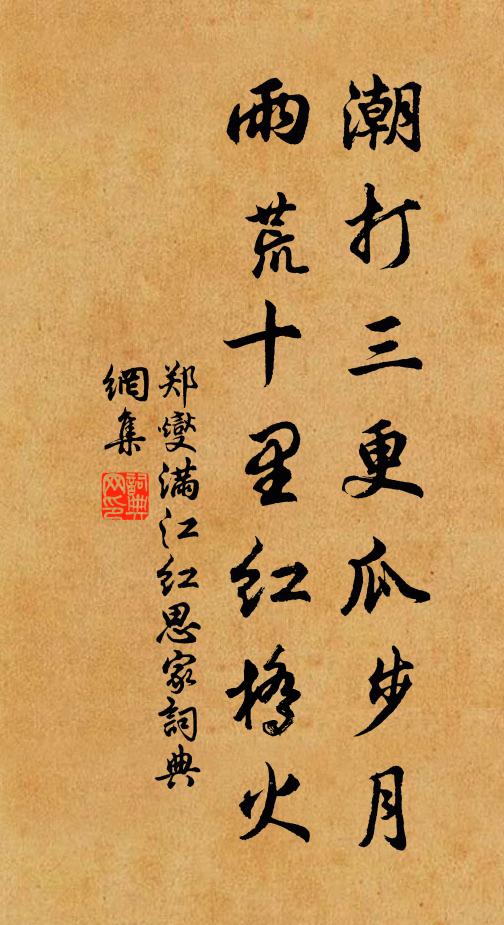 潮打三更瓜步月
雨荒十里红橋火
郑燮滿江红思家詞典
網集
詞典
网印